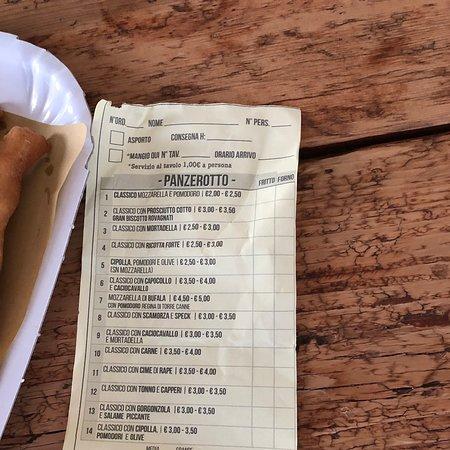 N°ORD. NOME N° PERS.
ASPORTO CONSEGNA H:
*MANGIO QUI N° TAV. ORARIO ARRIVO
*Servizio al tavolo 1,00€ a persona
- PANZEROTTO - FRITTO FORNO
1 CLASSICO MOZZARELLA E POMODORO | €2,00 - €2,50
2 CLASSICO CON PROSCIUTTO COTTO | € 3,00 - 3,50
GRAN BISCOTTO ROVAGNATI
3 CLASSICO CON MORTADELLA | € 2,50 - € 3,00
4 CLASSICO CON RICOTTA FORTE | € 2,50 - € 3,00
5 CIPOLLA, POMODORI E OLIVE | € 2,50 - € 3,00
(SN MOZZARELLA)
6 CLASSICO CON CAPOCOLLO | € 3,50 - € 4,00
E CACIOCAVALLO
7 MOZZARELLA DI BUFALA | € 4,50 - € 5,00
CON POMODORO REGINA DI TORRE CANNE
8 CLASSICO CON SCAMORZA E SPECK | € 3,00 - € 3,50
9 CLASSICO CON CACIOCAVALLO | € 3,00 - € 3,50
E MORTADELLA
10 CLASSICO CON CARNE | € 3,50 - € 4,00
11 CLASSICO CON CIME DI RAPE | € 3,50 - € 4,00
12 CLASSICO CON TONNO E CAPPERI | € 3,00 - € 3,50
13 CLASSICO CON GORGONZOLA | € 3,00 - € 3,50
E SALAME PICCANTE
14 CLASSICO CON CIPOLLA, | € 3,00 - € 3,50
POMODORI E OLIVE
MEDIA GRANDE